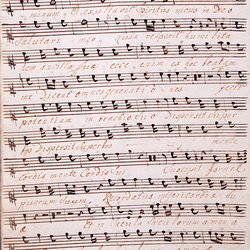 spiritus meus in Deo
Salutari meo quia respexit humilita
tem ancillae suae ecce enim ex hoc beatam
me Dicent omnes generati o nes fecit
potentiam in brachio suo Dispersit super
bos Dispersit superbos mente
Cordis mente Cordis sui Suscepit Israel
puerum suum Recordatus misericordiae
et in saecula